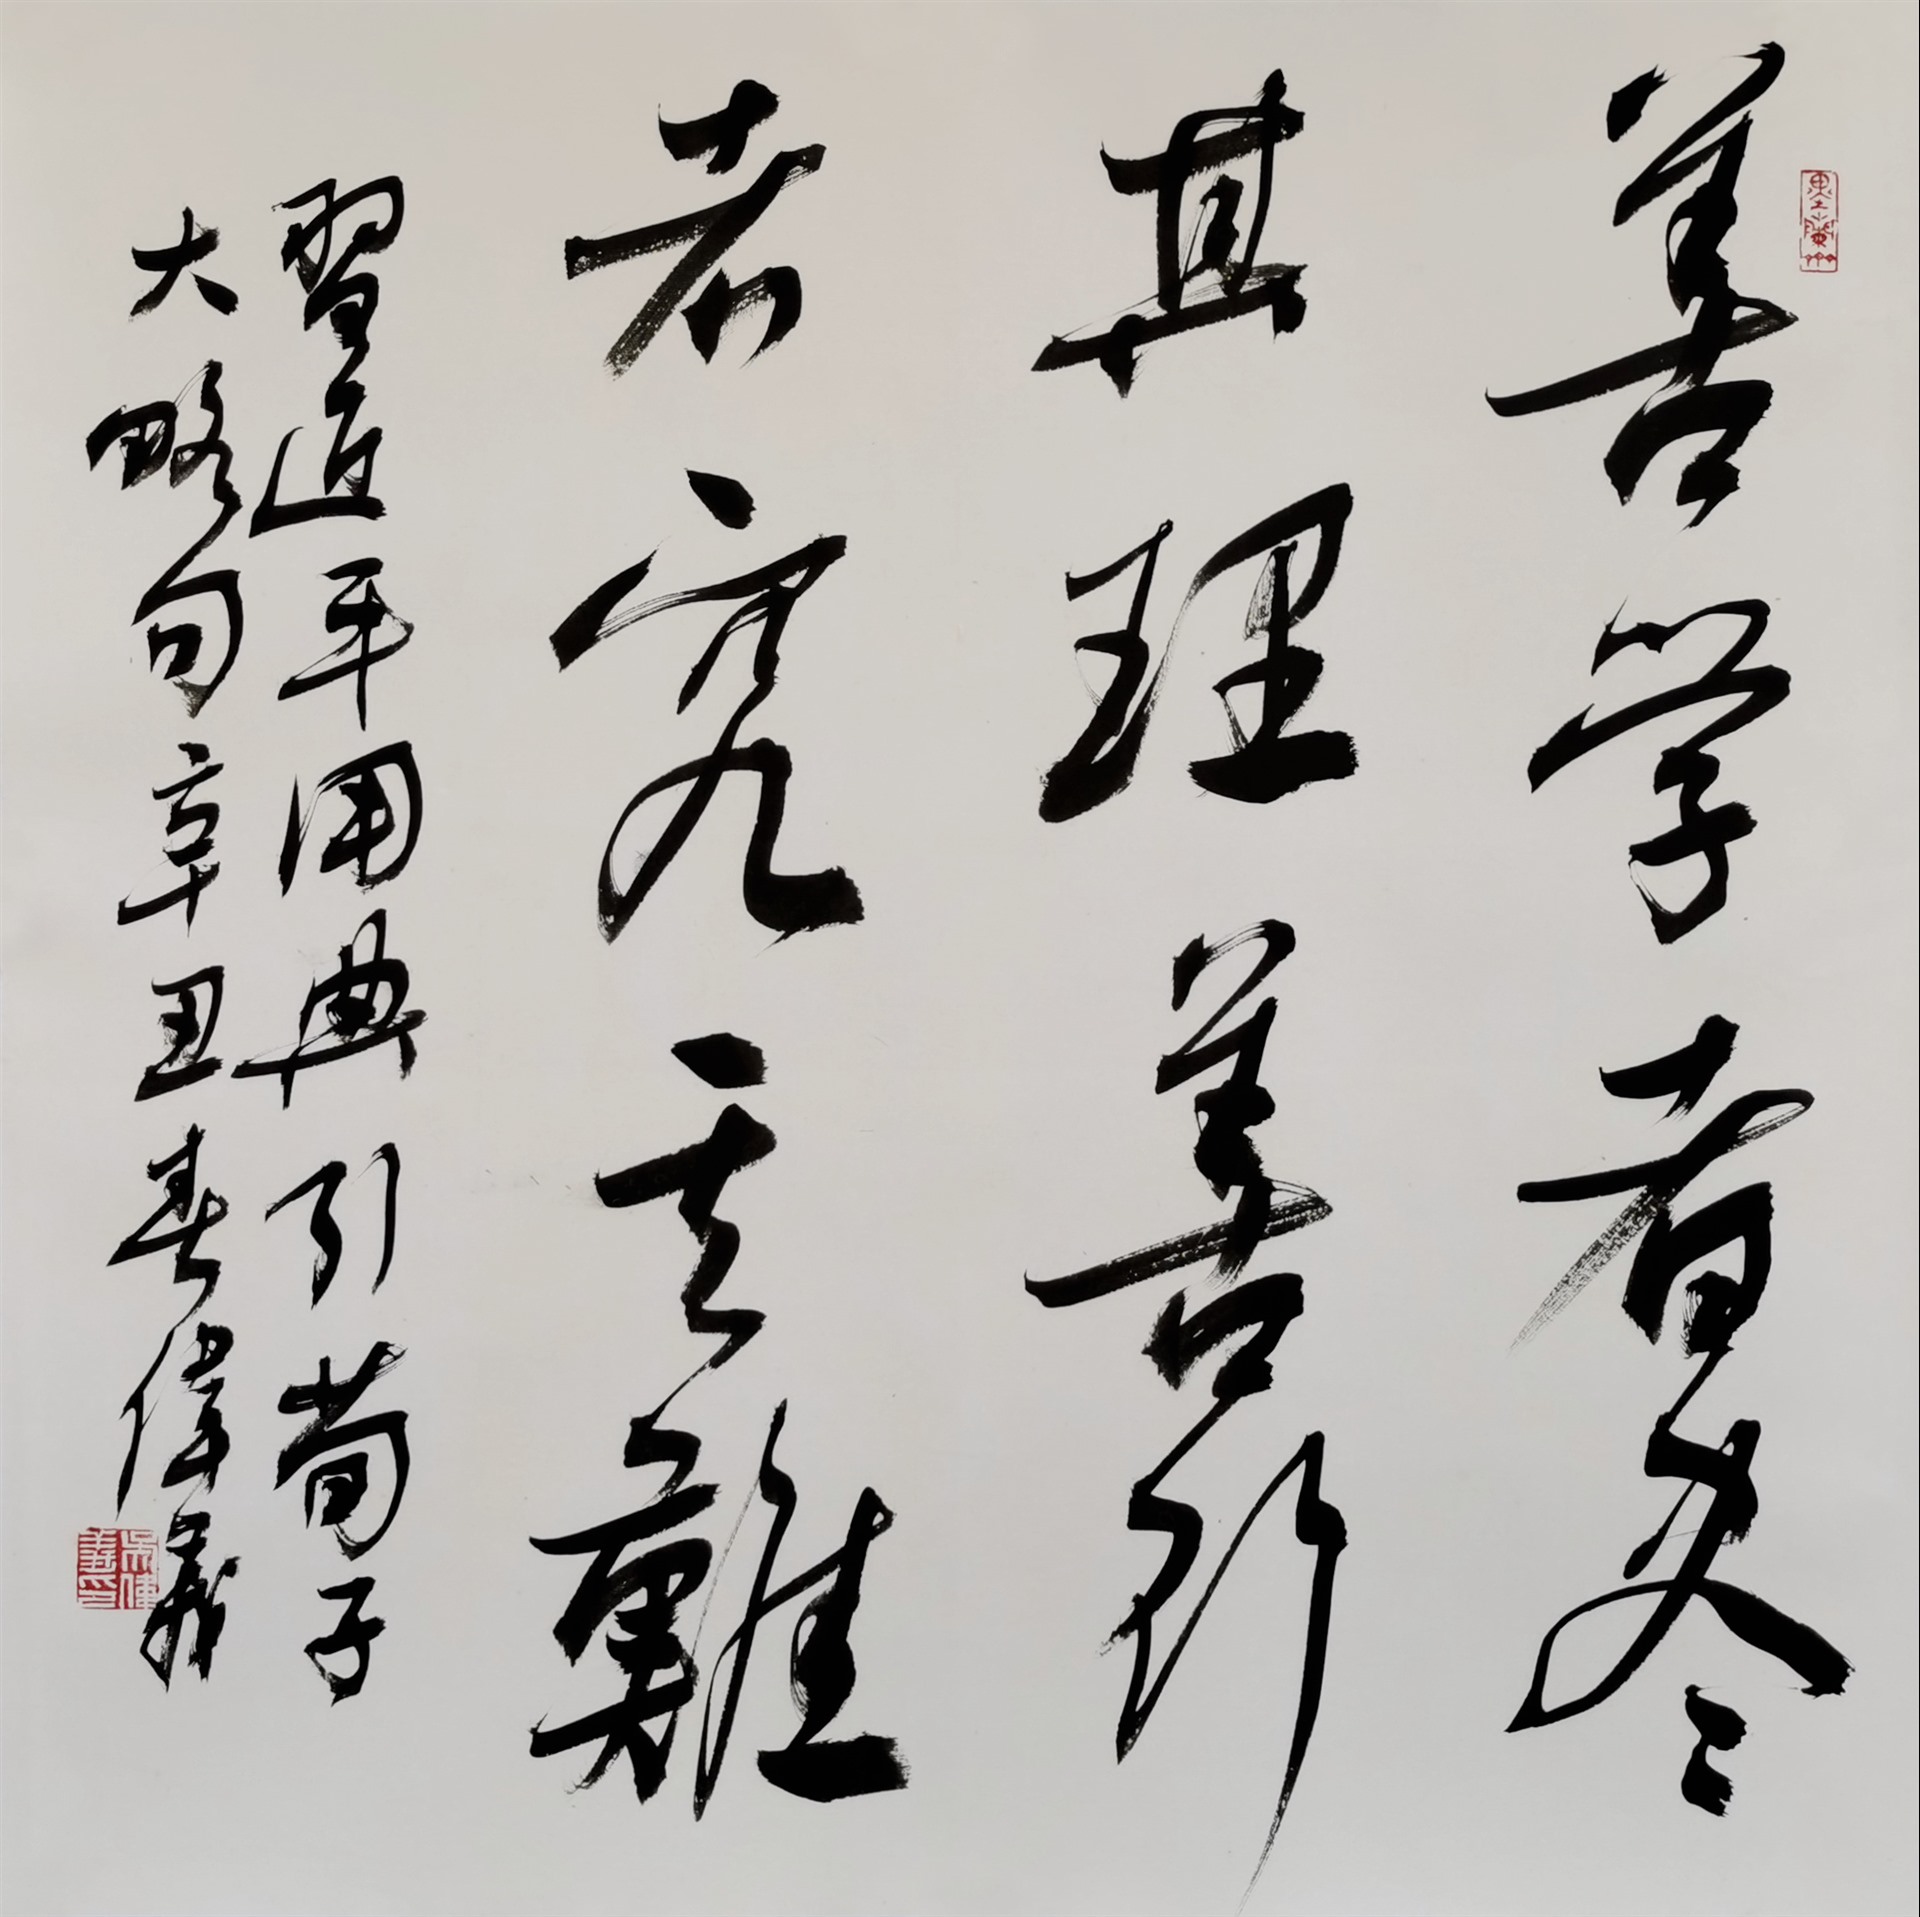 善学者尽
其理善行
者究其难
習近平用典引荀子
大略句辛丑春偉義